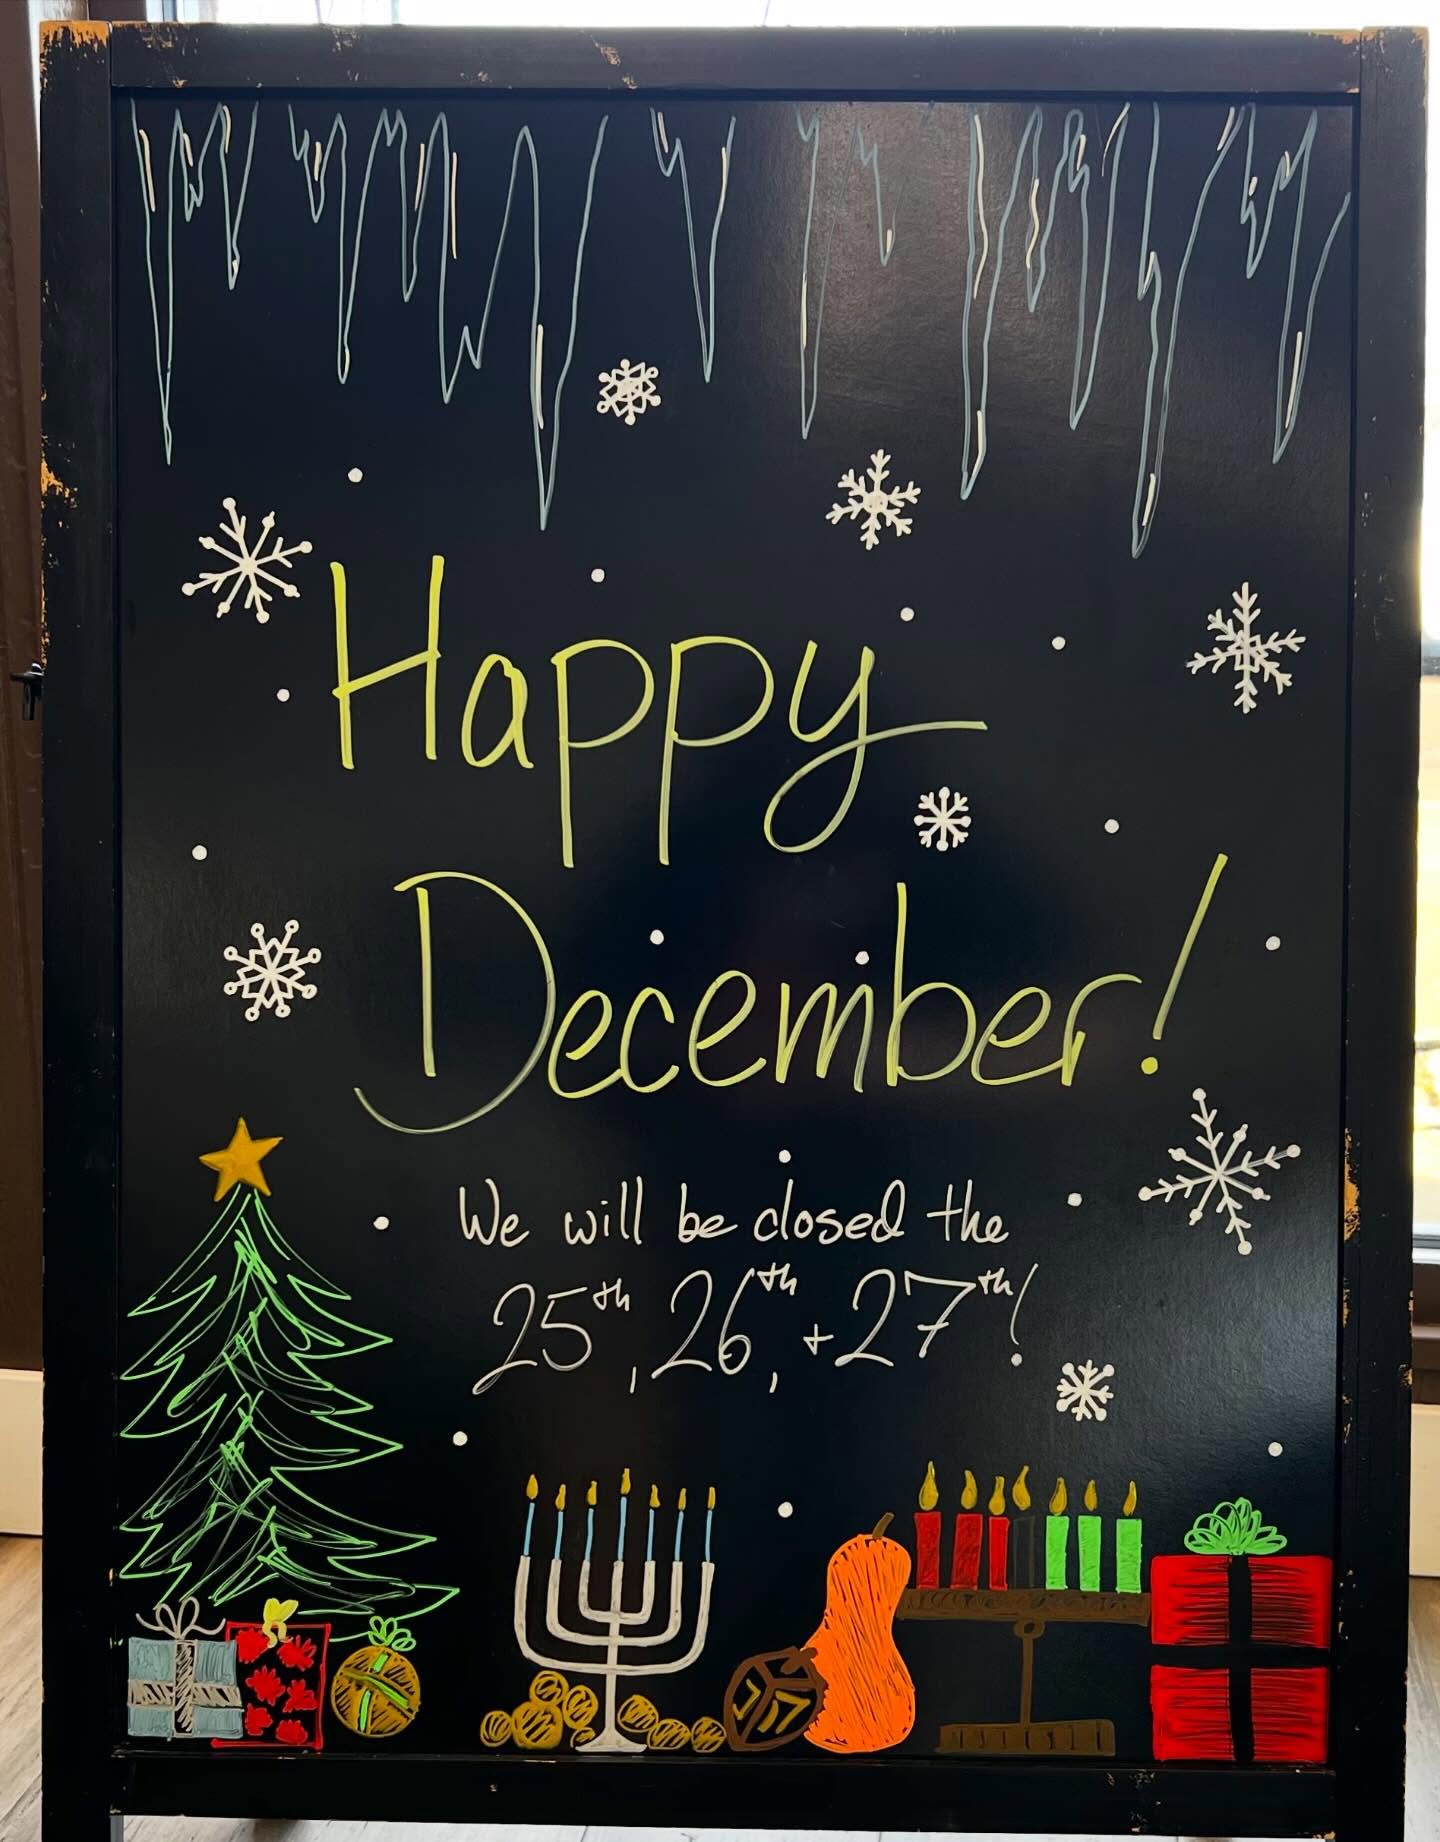 Happy
December!
We will be closed the
25th, 26th, + 27th!